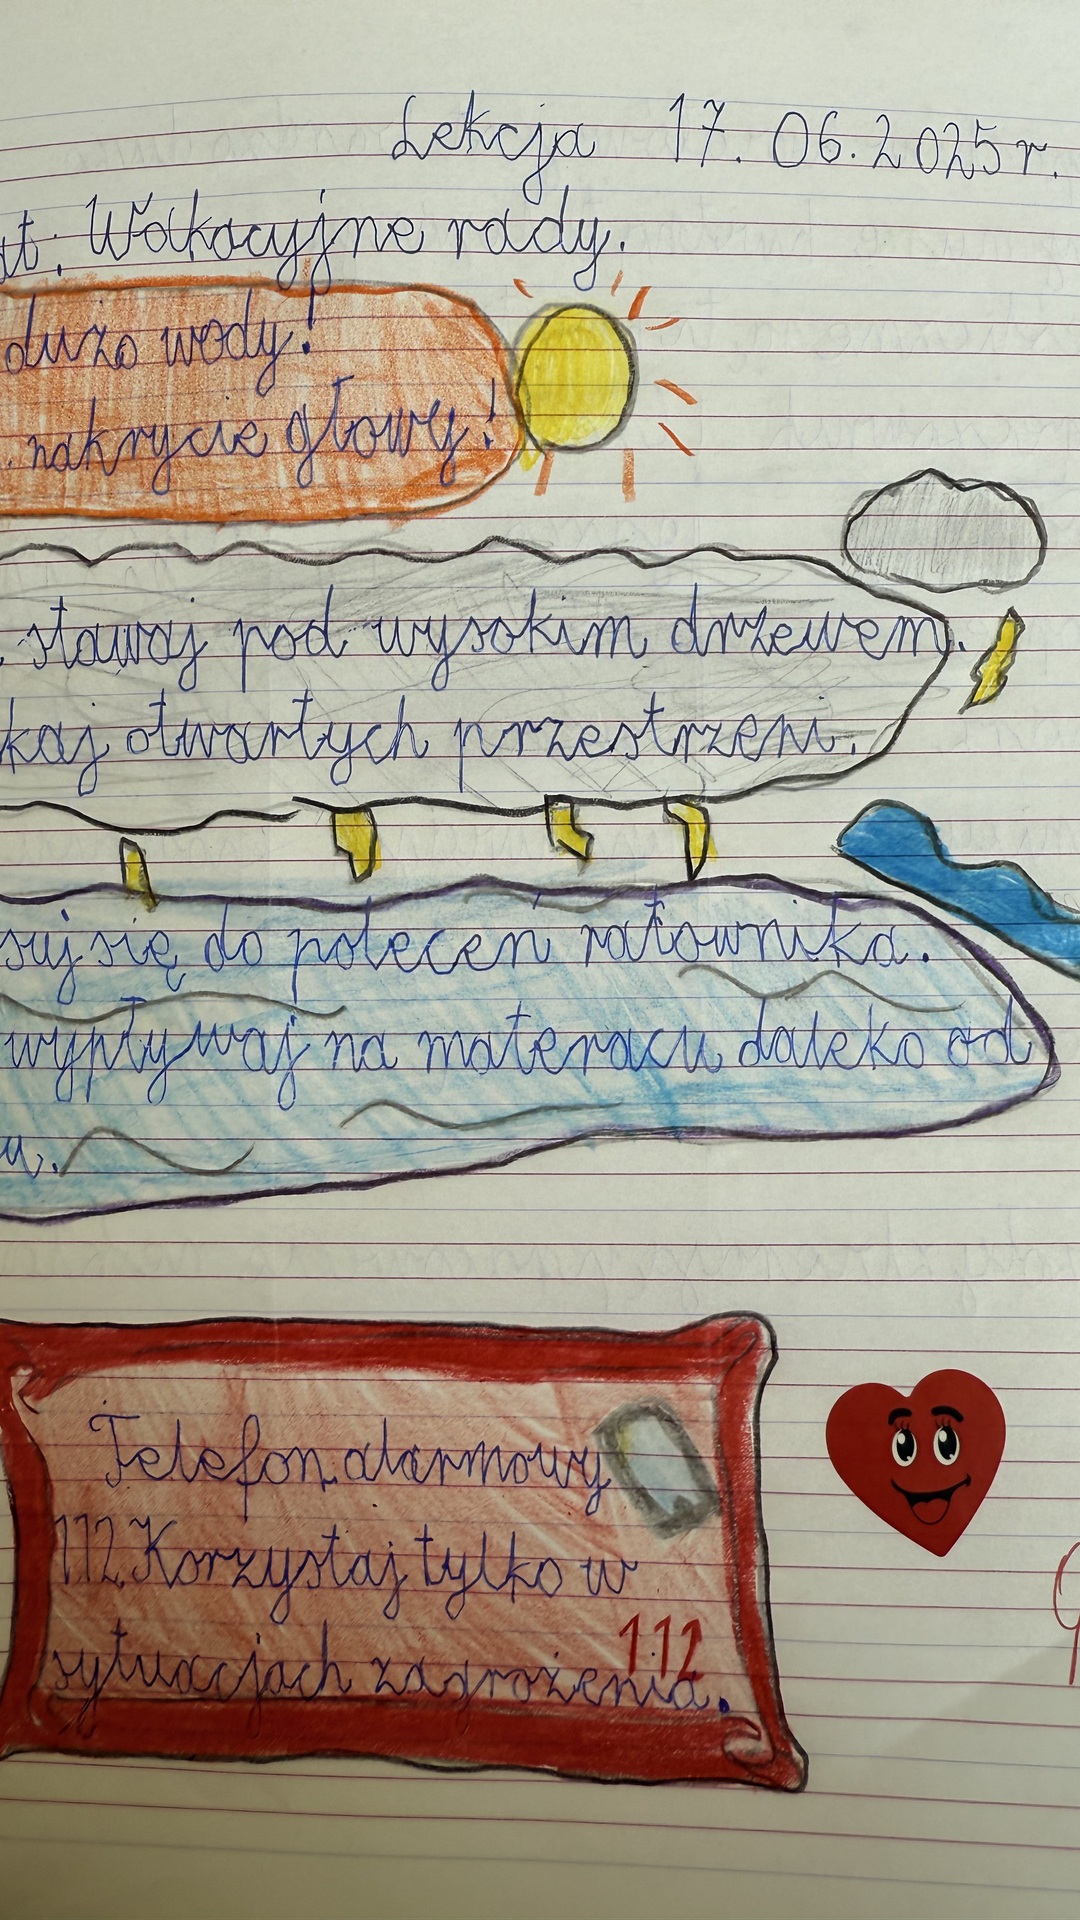 Lekcja 17.06.2025r.
at. Wakacyjne rady.
dużo wody!
nakrycie głowy!
stawaj pod wysokim drzewem.
kaj otwartych przestrzeni.
suj się do poleceń ratownika.
wypływaj na materacu daleko od
u.
Telefon alarmowy
112. Korzystaj tylko w
112
sytuacjach zagrożenia.